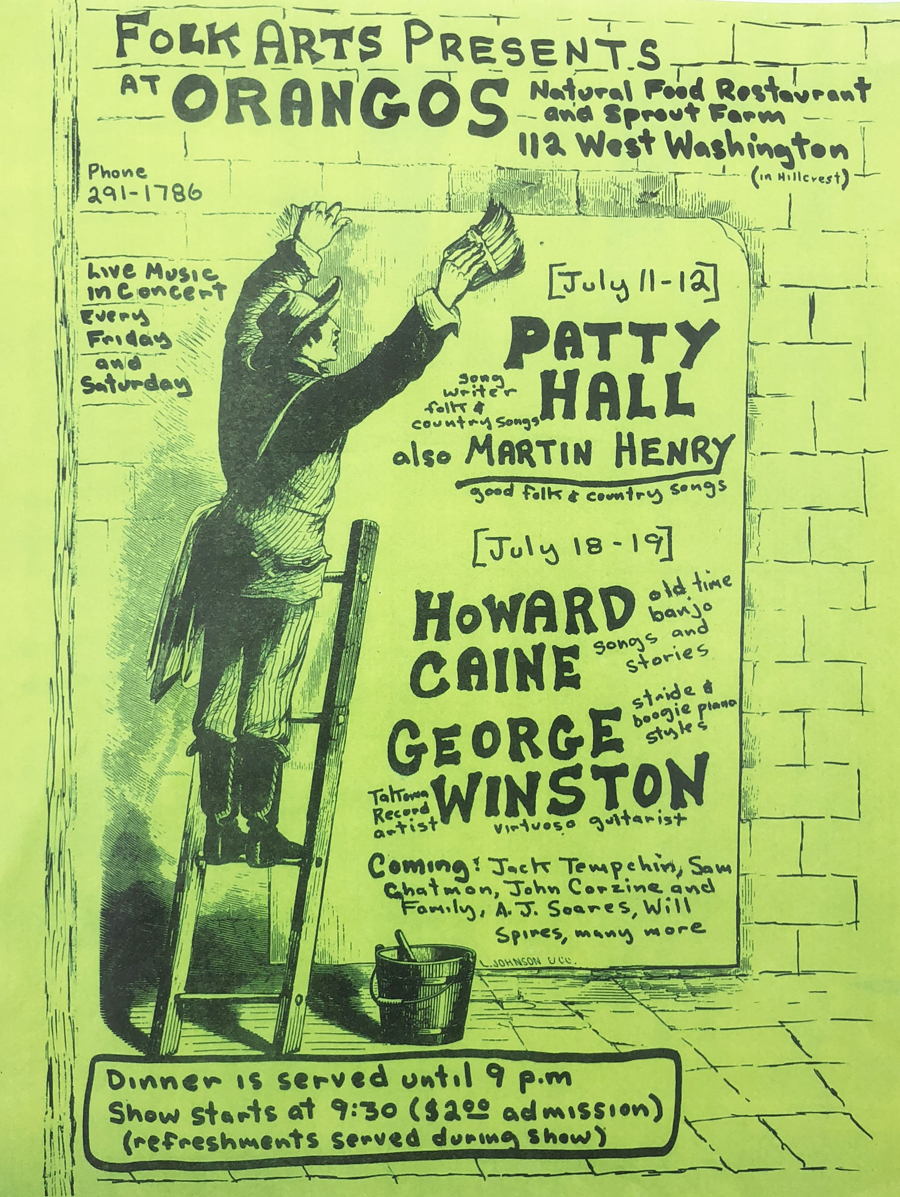 FOLK ARTS PRESENTS
AT ORANGOS
Natural Food Restaurant
and Sprout Farm
112 West Washington
(in Hillcrest)
Phone
291-1786
Live Music
in Concert
Every
Friday
and
Saturday
[July 11-12]
PATTY
HALL
song
writer
folk &
country songs
also MARTIN HENRY
good folk & country songs
[July 18-19]
HOWARD
CAINE
old time
banjo
songs and
stories
GEORGE
WINSTON
stride &
boogie piano
styles
Takoma
Record
artist
virtuoso guitarist
Coming: Jack Tempchin, Sam
Chatmon, John Corzine and
Family, A.J. Soares, Will
Spires, many more
L. JOHNSON
Dinner is served until 9 p.m
Show starts at 9:30 ($2.00 admission)
(refreshments served during show)